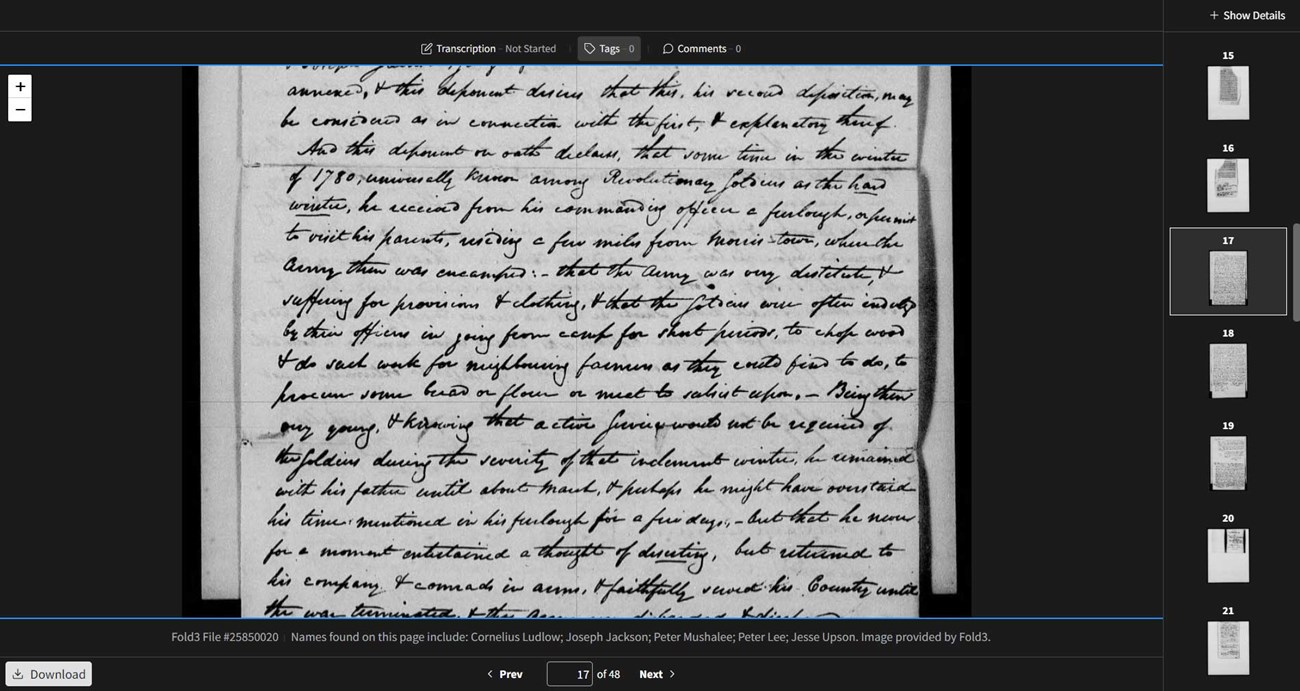 Show Details
Transcription - Not Started
Tags - 0
Comments - 0
+
−
annexed, & this deponent desires that this, his second deposition, may
be considered as in connection with the first, & explanatory thereof.
And this deponent on oath declares, that some time in the winter
of 1780, universally known among Revolutionary Soldiers as the hard
winter, he received from his commanding officer a furlough, or permit
to visit his parents, residing a few miles from Morris-town, where the
Army then was encamped:- that the Army was very destitute, &
suffering for provisions & clothing, & that the Soldiers were often indulged
by their officers in going from camp for short periods, to chop wood
& do such work for neighbouring farmers as they could find to do, to
procure some bread or flour or meat to subsist upon. - Being then
very young, & knowing that active Service would not be required of
the Soldiers during the severity of that inclement winter, he remained
with his father until about March, & perhaps he might have overstaid
his time mentioned in his furlough for a few days, - but that he never
for a moment entertained a thought of deserting, but returned to
his company & comrads in arms, & faithfully served his Country until
the war terminated, & the
15
16
17
18
19
20
21
Fold3 File #25850020 | Names found on this page include: Cornelius Ludlow; Joseph Jackson; Peter Mushalee; Peter Lee; Jesse Upson. Image provided by Fold3.
Download
Prev 17 of 48 Next